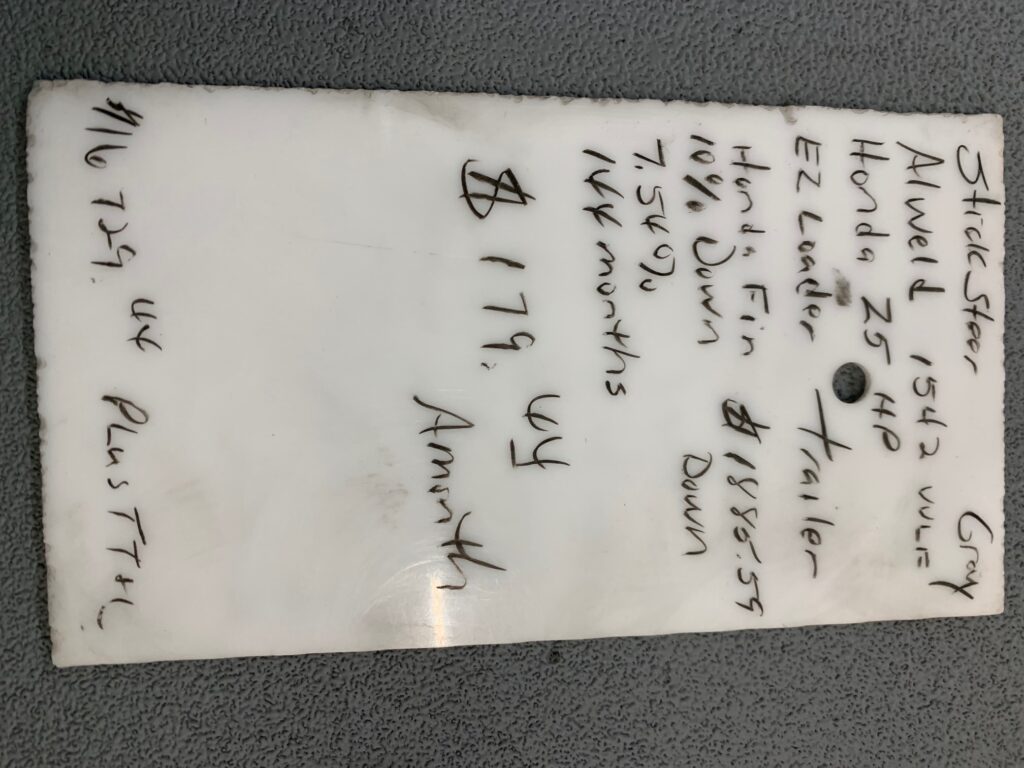 Stick Steer Gray
Alweld 1542 VVLF
Honda 25 HP
EZ Loader Trailer
Honda Fin $1885.59
10% Down Down
7.54%
144 months
$179.44
Amonth
$16729.44 Plus TT+L